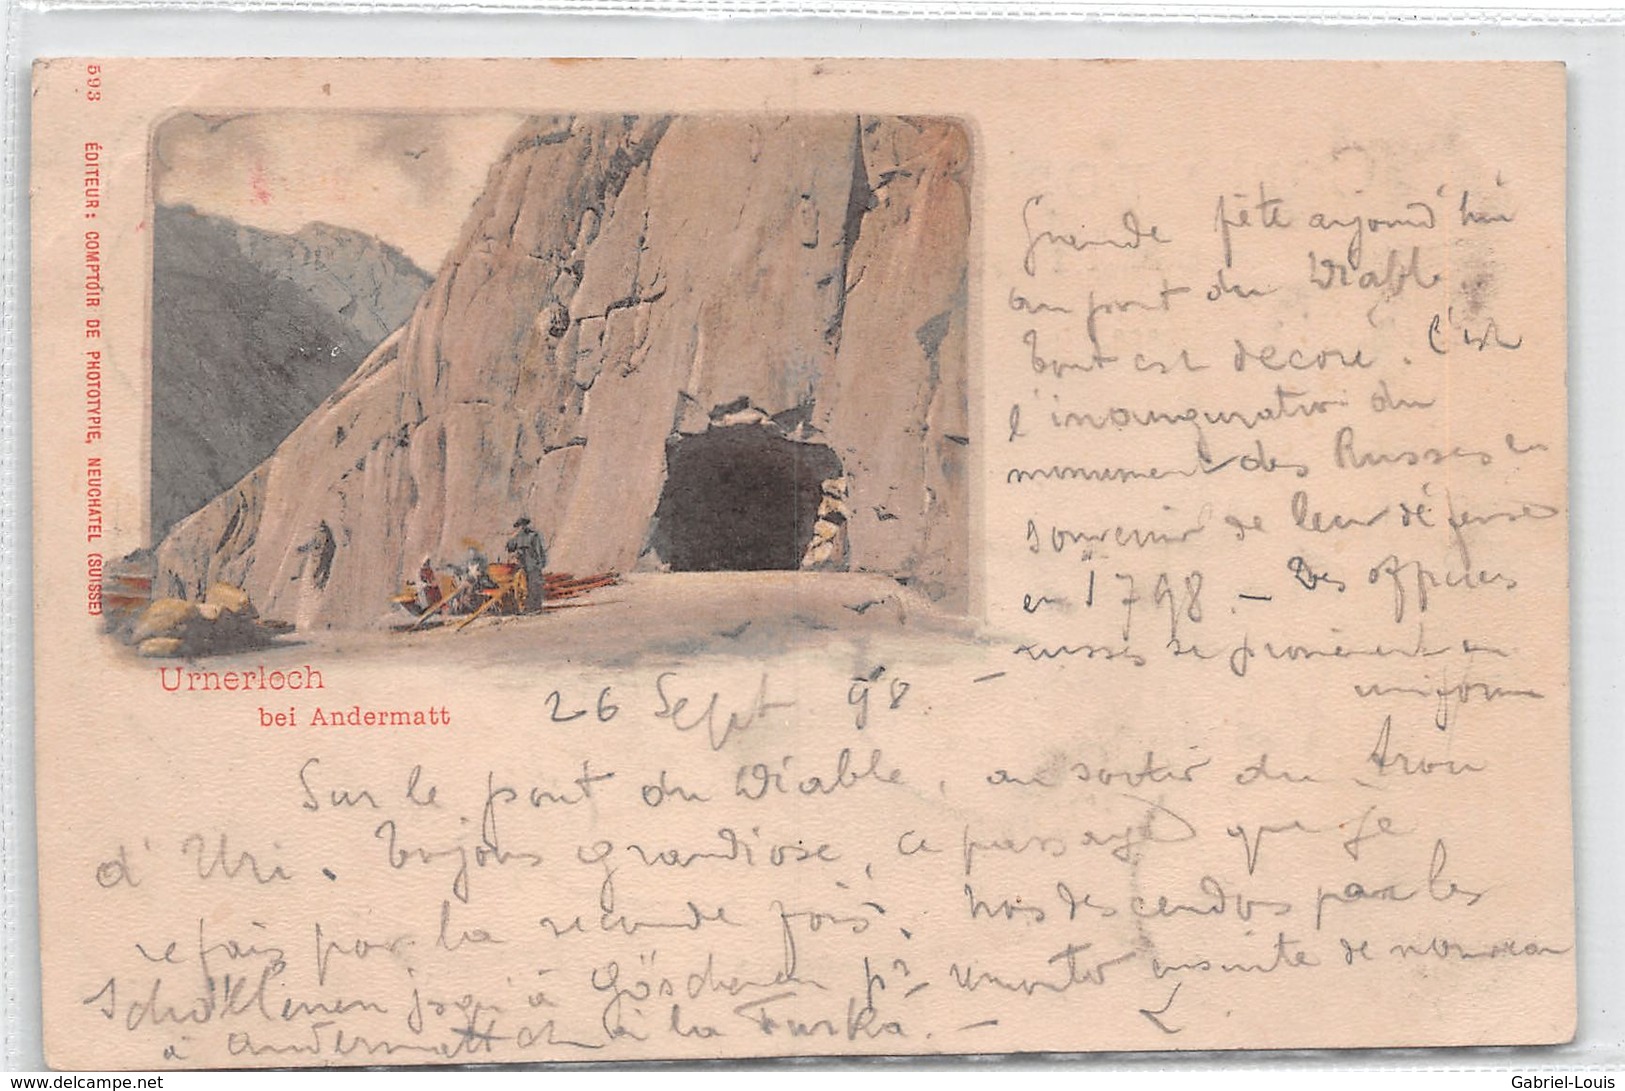 593 ÉDITEUR: COMPTOIR DE PHOTOTYPIE, NEUCHATEL (SUISSE)
Urnerloch
bei Andermatt
26 Sept 98.
Grande fête aujourd'hui
au pont du Diable
tout est décoré. C'est
l'inauguration du
monument des Russes en
souvenir de leur défense
en 1798. - Des officiers
russes se promènent en
uniforme
Sur le pont du Diable, au sortir du trou
d'Uri. Toujours grandiose, ce passage que je
refais pour la seconde fois. Nous descendons par les
Schöllenen jusqu'à Göschenen pr remonter ensuite de nouveau
à Andermatt et à la Furka. -
www.delcampe.net
Gabriel-Louis